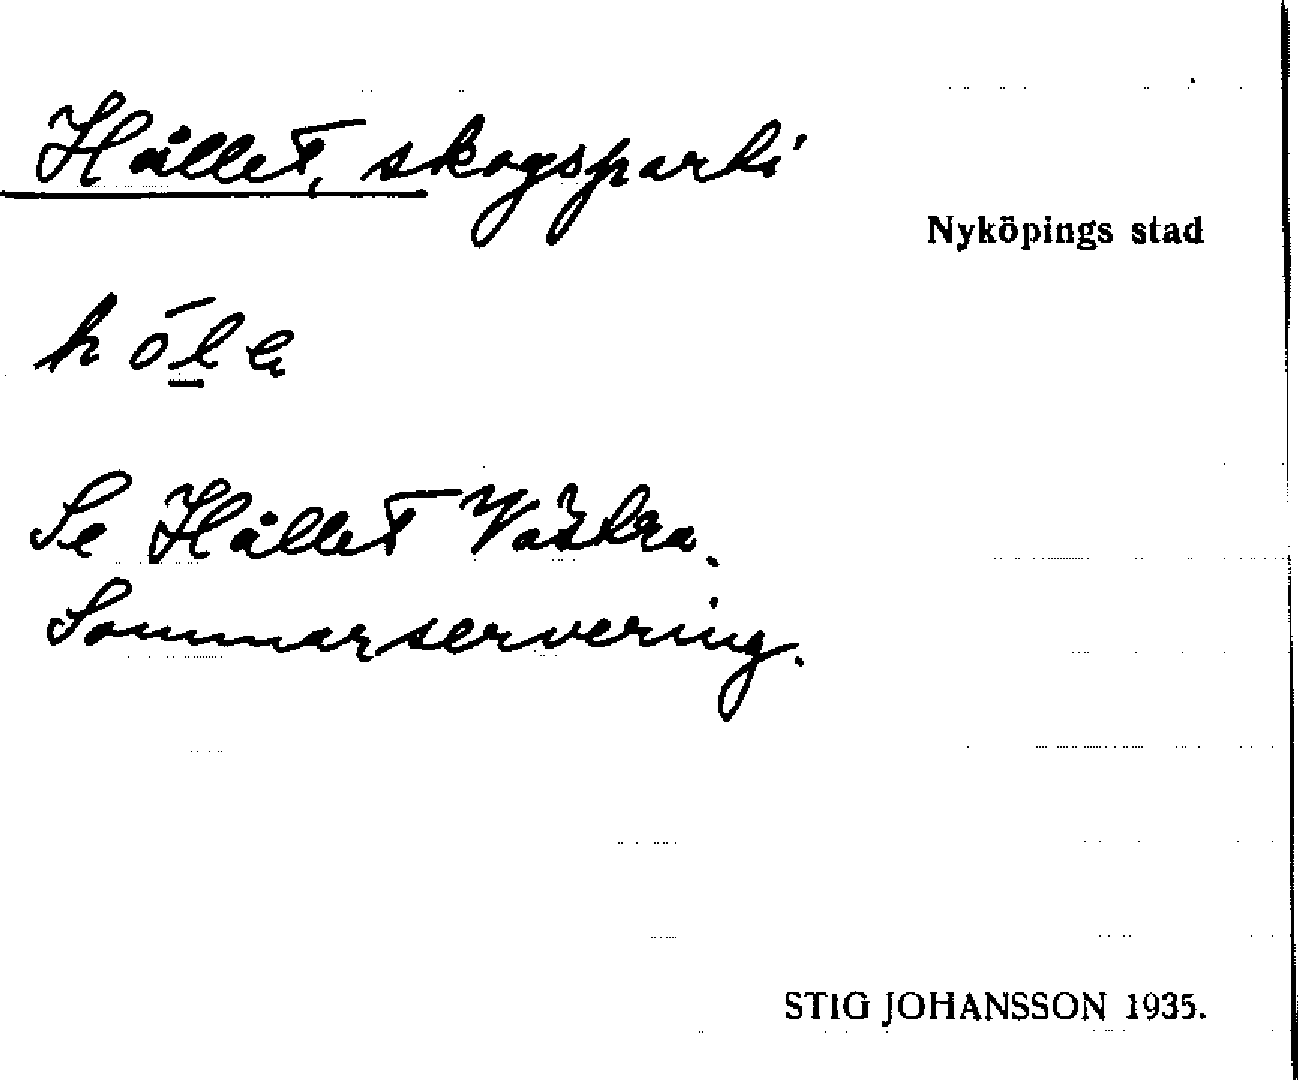 Hållet, skogsparti
Nyköpings stad
hóle
Se Hållet Västra.
Sommarservering.
STIG JOHANSSON 1935.